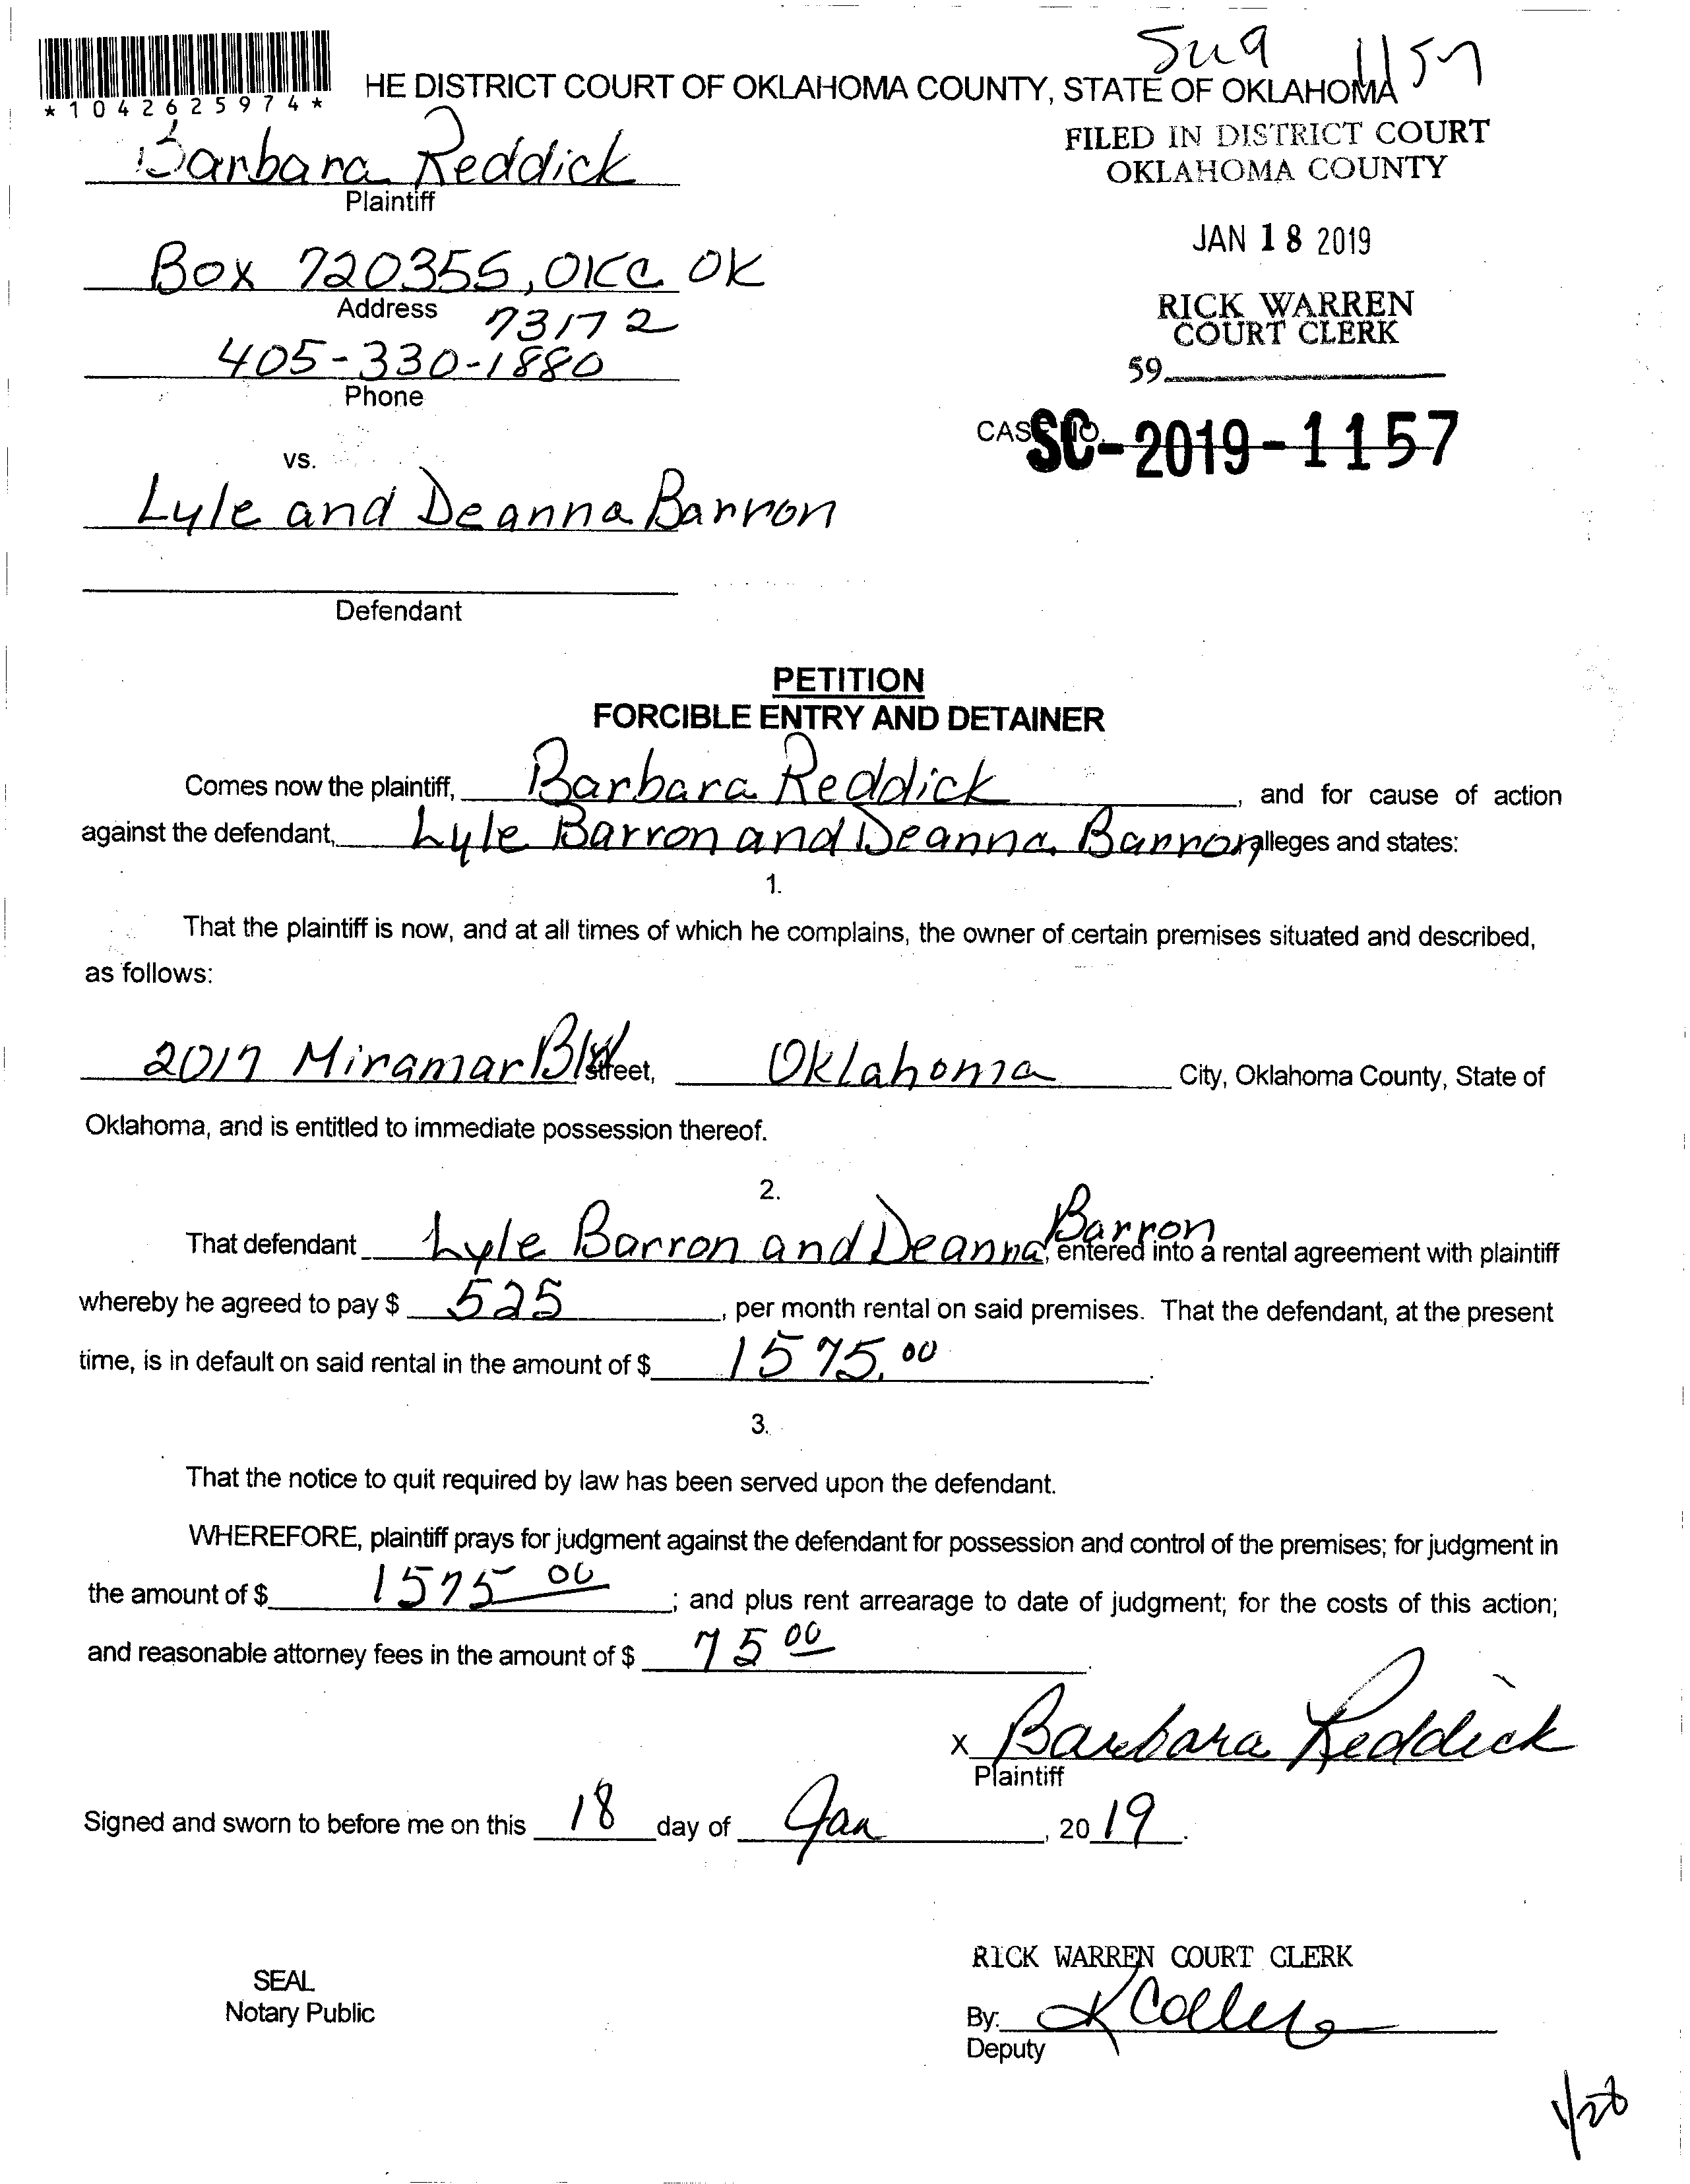 Su9 1157
*1042625974*
HE DISTRICT COURT OF OKLAHOMA COUNTY, STATE OF OKLAHOMA
FILED IN DISTRICT COURT
OKLAHOMA COUNTY
Barbara Reddick
Plaintiff
JAN 18 2019
Box 720355, OKC OK
Address
73172
RICK WARREN
COURT CLERK
405-330-1880
Phone
59
CASE NO.
SC-2019-1157
vs.
Lyle and Deanna Barron
Defendant
PETITION
FORCIBLE ENTRY AND DETAINER
Comes now the plaintiff, Barbara Reddick, and for cause of action
against the defendant, Lyle Barron and Deanna Barron alleges and states:
1.
That the plaintiff is now, and at all times of which he complains, the owner of certain premises situated and described,
as follows:
2017 Miramar Blvd Street, Oklahoma City, Oklahoma County, State of
Oklahoma, and is entitled to immediate possession thereof.
2.
That defendant Lyle Barron and Deanna Barron, entered into a rental agreement with plaintiff
whereby he agreed to pay $ 525, per month rental on said premises. That the defendant, at the present
time, is in default on said rental in the amount of $ 1575.00.
3.
That the notice to quit required by law has been served upon the defendant.
WHEREFORE, plaintiff prays for judgment against the defendant for possession and control of the premises; for judgment in
the amount of $ 1575 00; and plus rent arrearage to date of judgment; for the costs of this action;
and reasonable attorney fees in the amount of $ 75 00.
x Barbara Reddick
Plaintiff
Signed and sworn to before me on this 18 day of Jan, 2019.
RICK WARREN COURT CLERK
SEAL
Notary Public
By:
Deputy